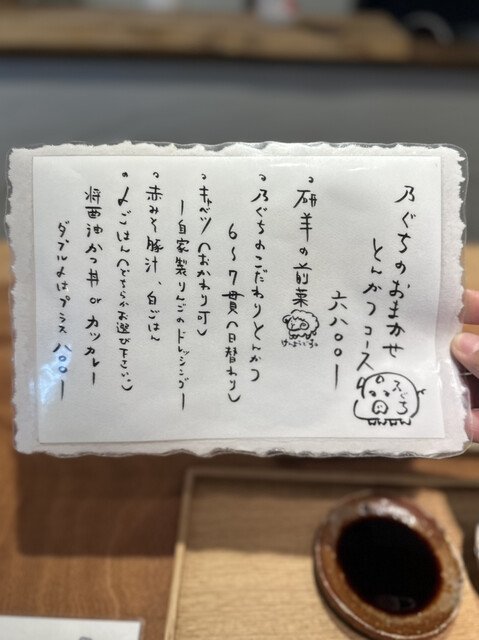 乃ぐちのおまかせ
とんかつコース
六八〇〇ー
乃ぐち
・研羊の前菜
けんようじゃ
・乃ぐちのこだわりとんかつ
6〜7貫(日替わり)
・キャベツ(おかわり可)
ー自家製りんごのドレッシングー
・赤みそ豚汁、白ごはん
・〆ごはん(どちらかお選び下さい。)
将西油かつ丼 or カツカレー
ダブル〆はプラス八〇〇ー